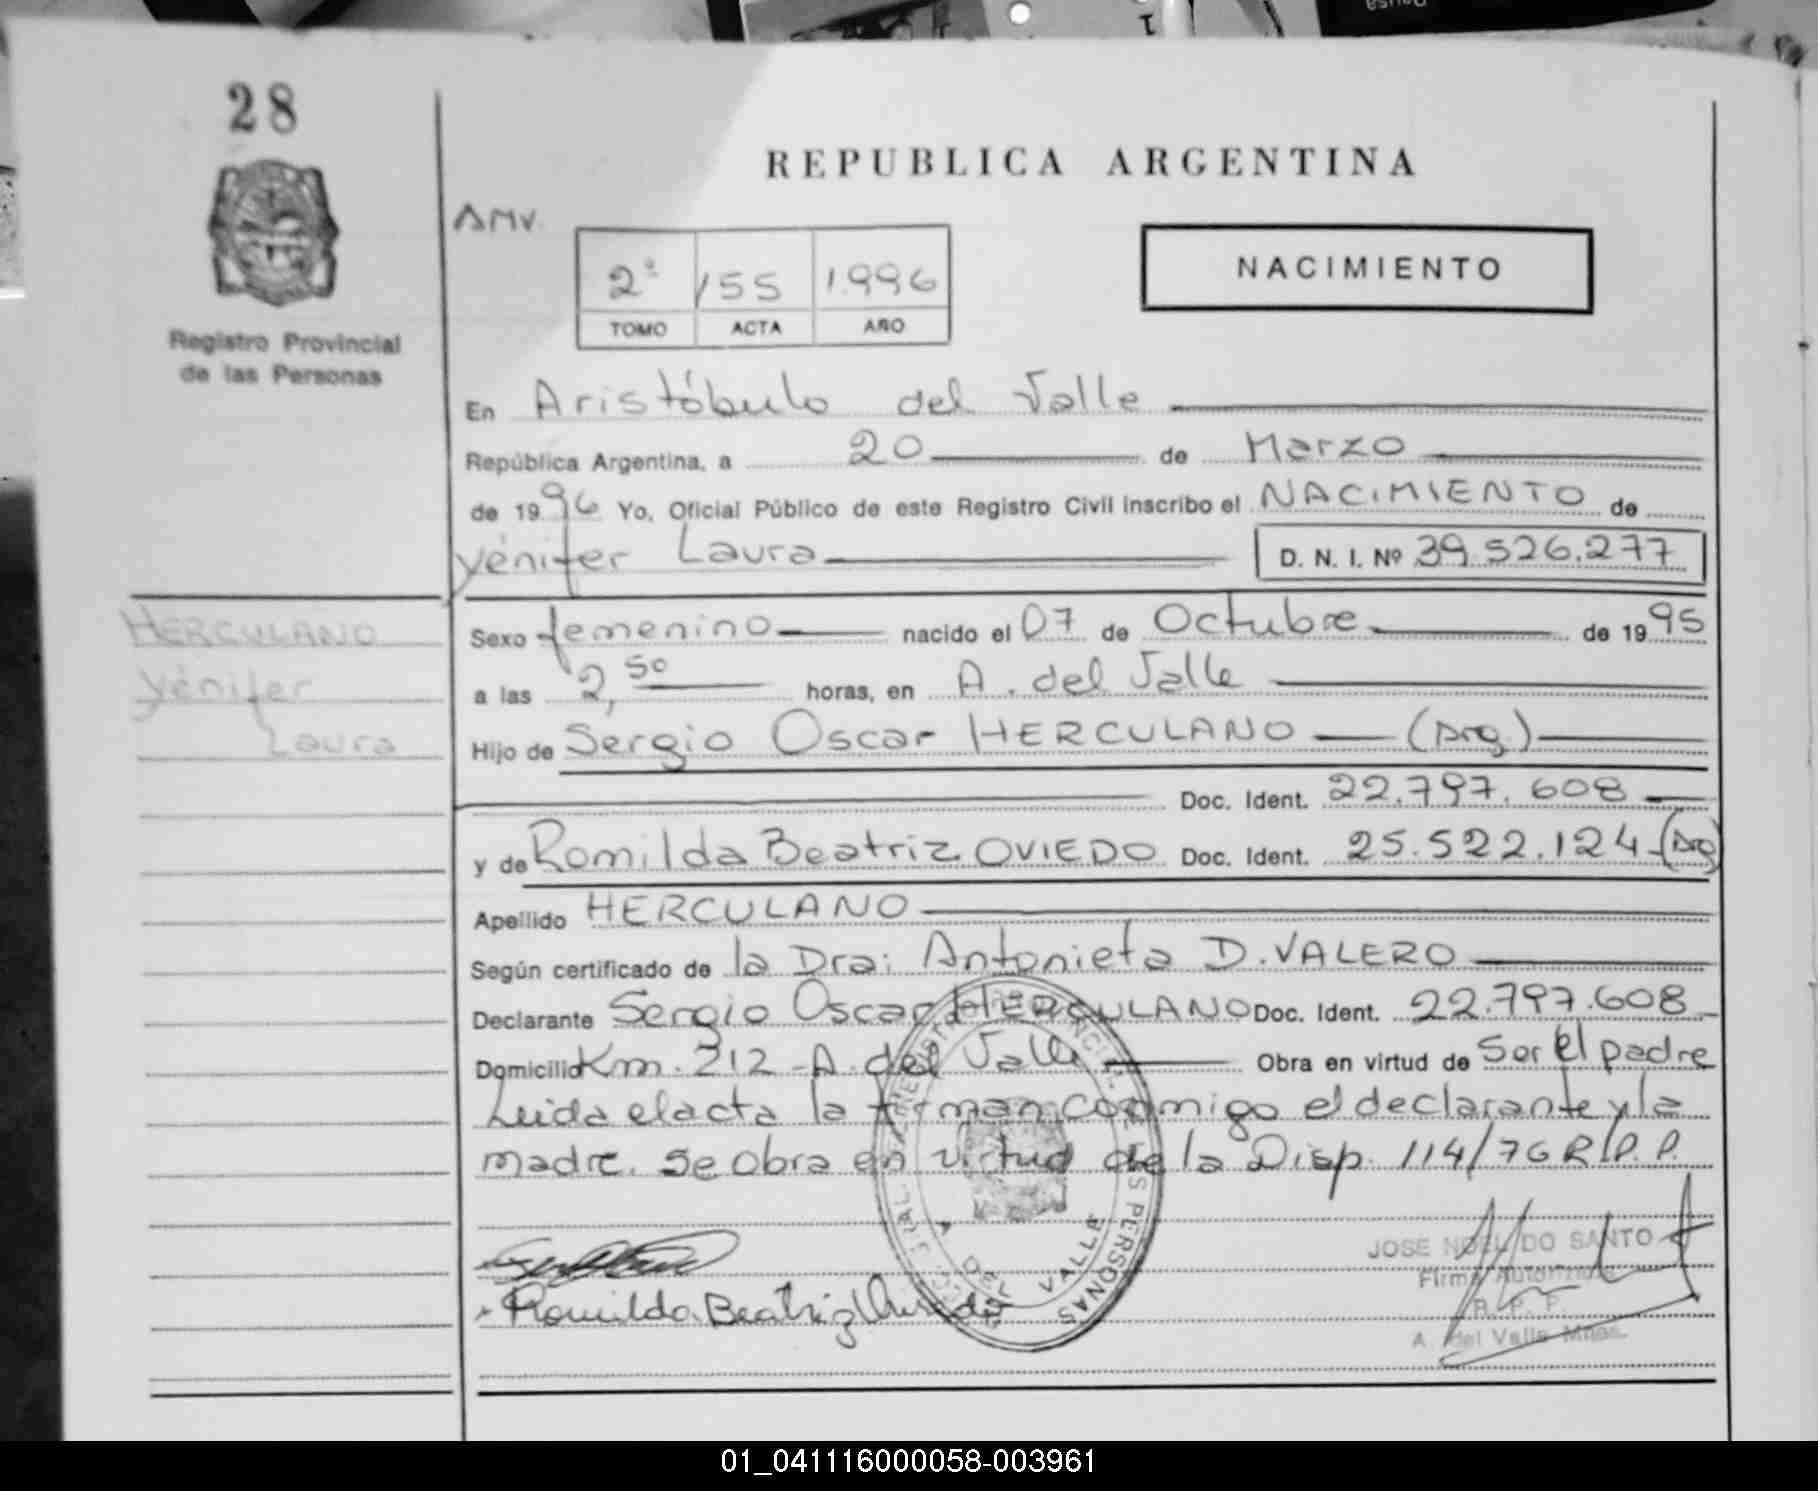 28
REPUBLICA ARGENTINA
Registro Provincial
de las Personas
AMV.
2º 155 1.996
TOMO ACTA AÑO
NACIMIENTO
En Aristóbulo del Valle
República Argentina, a 20 de Marzo
de 1996 Yo, Oficial Público de este Registro Civil inscribo el NACIMIENTO de
Yénifer Laura D. N. I. Nº 39.526.277
HERCULANO
Yénifer
Laura
Sexo femenino nacido el 07 de Octubre de 1995
a las 2,50 horas, en A. del Valle
Hijo de Sergio Oscar HERCULANO (Arg.)
Doc. Ident. 22.797.608
y de Romilda Beatriz OVIEDO Doc. Ident. 25.522.124 (Arg)
Apellido HERCULANO
Según certificado de la Dra: Antonieta D. VALERO
Declarante Sergio Oscar HERCULANO Doc. Ident. 22.797.608
Domicilio Km. 212 - A. del Valle Obra en virtud de Ser el padre
Leida el acta la firman conmigo el declarante y la
madre. Se obra en virtud de la Disp. 114/76 R.P.P.
Romilda Beatriz Oviedo
JOSE NOEL DO SANTO
Firma Autorizada
R. P. P.
A. del Valle Mnes.
DEL VALLE
PERSONAS
01_041116000058-003961